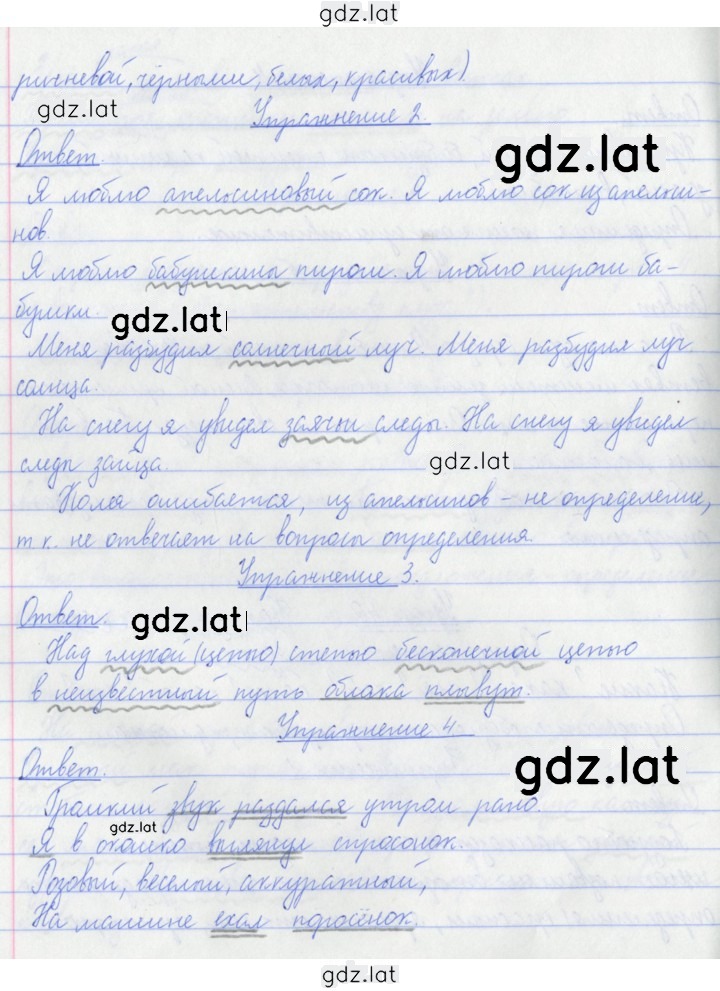 gdz.lat
ричневой, чёрными, белых, красивых)
gdz.lat
Упражнение 2.
Ответ.
gdz.lat
Я люблю апельсиновый сок. Я люблю сок из апельси-
нов.
Я люблю бабушкины пироги. Я люблю пироги ба-
бушки.
gdz.lat
Меня разбудил солнечный луч. Меня разбудил луч
солнца.
На снегу я увидел заячьи следы. На снегу я увидел
следы зайца.
gdz.lat
Колея ошибается, из апельсинов - не определение,
т.к. не отвечает на вопросы определения.
Упражнение 3.
Ответ.
gdz.lat
Над глухой (цепью) степью бесконечной цепью
в неизвестный путь облака плывут.
Упражнение 4
Ответ.
gdz.lat
Громкий звук раздался утром рано.
gdz.lat
Я в окошко выглянул спросонок.
Розовый, веселый, аккуратный,
На машине ехал поросёнок.
gdz.lat